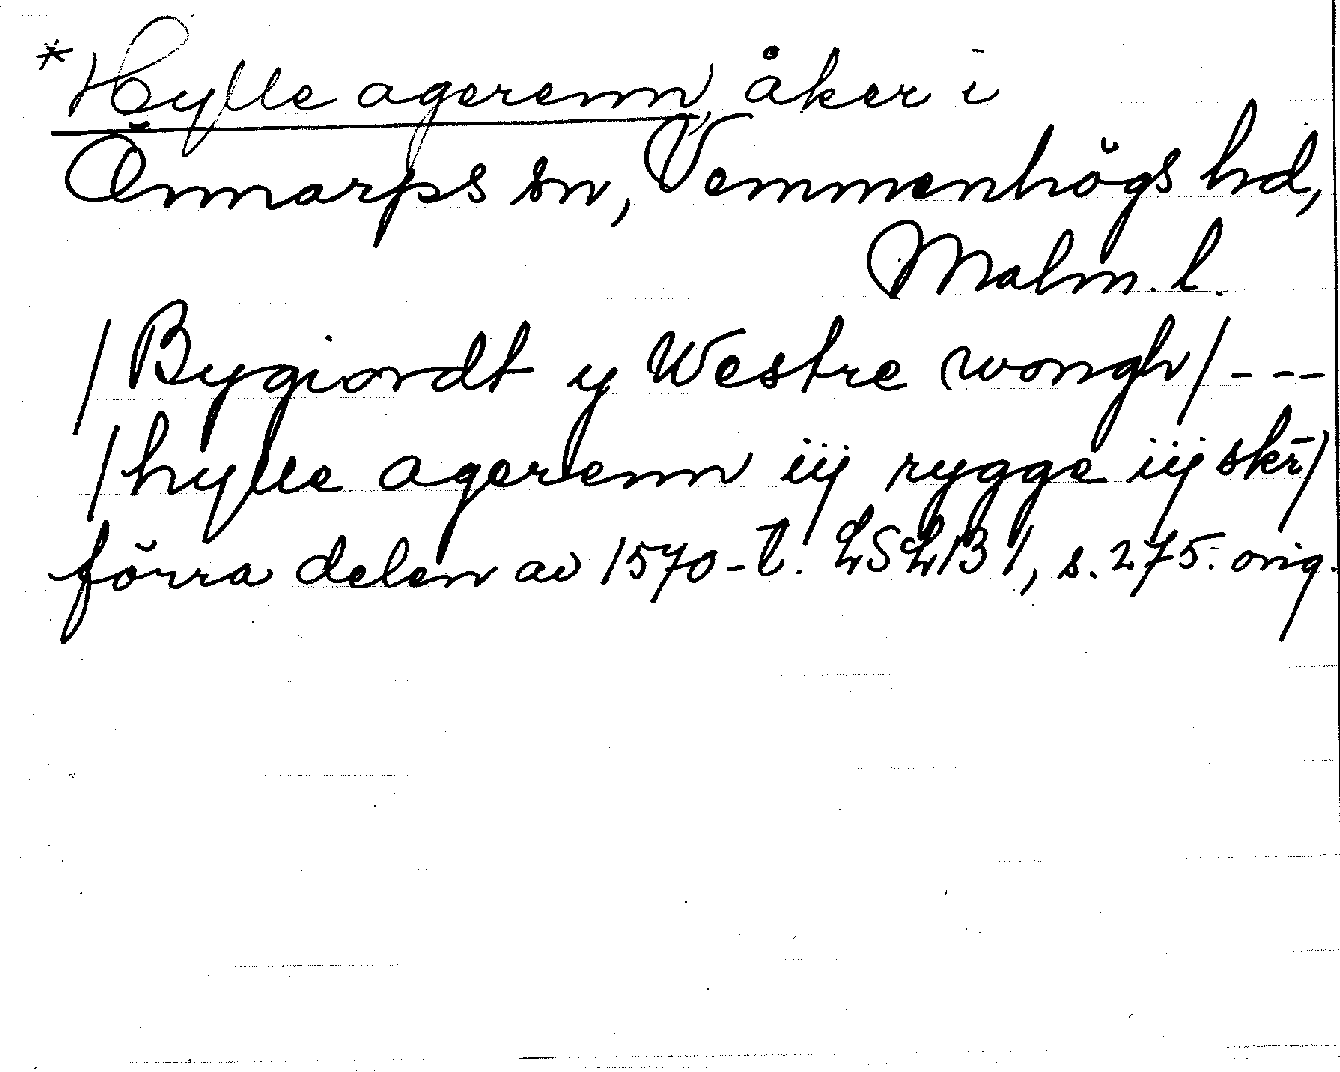 *Hylle agerenn, åker i
Önnarps sn, Vemmenhögs hd,
Malm. l.
/Bygiordt y Westre wongh/ - - -
/hylle agerenn iij rygge iij skr̄/
förra delen av 1570-t. LSLB 1, s. 275. orig.